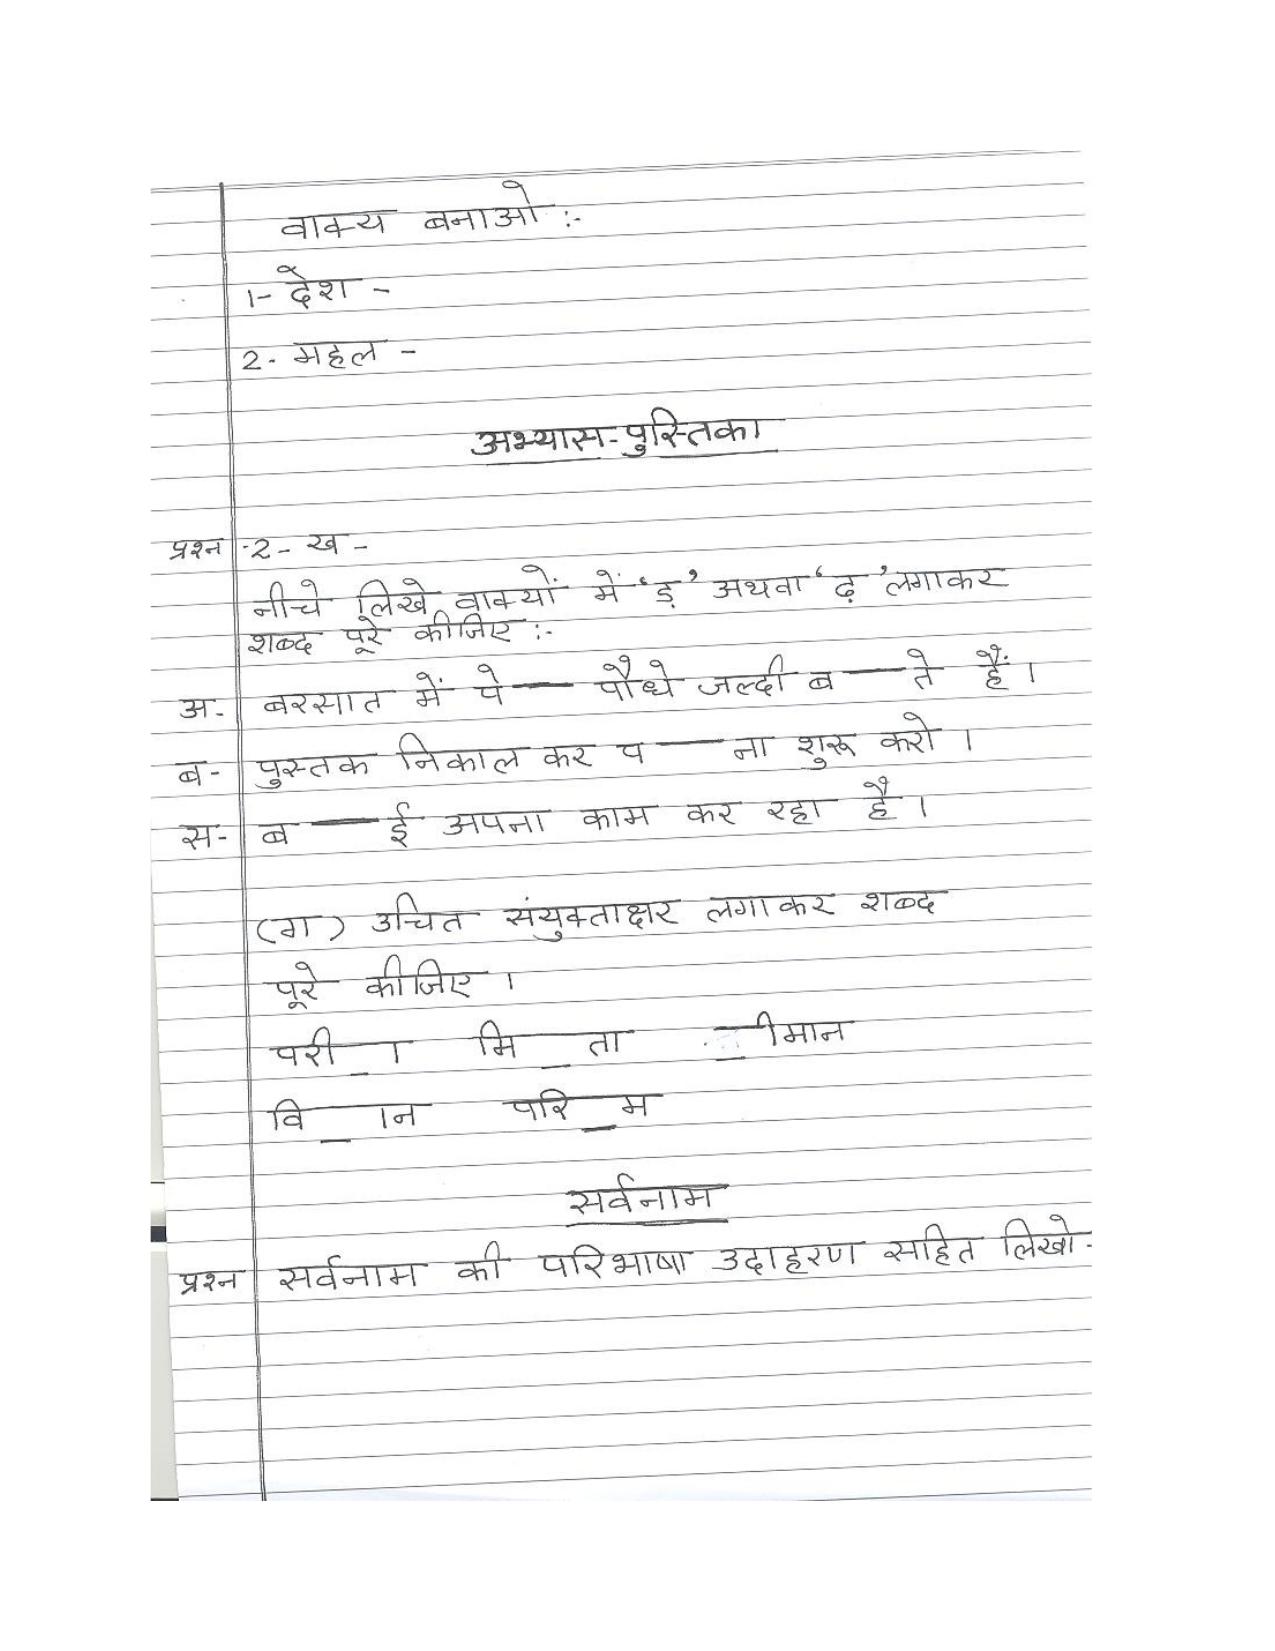 वाक्य बनाओ :-
1- देश -
2- महल -
अभ्यास-पुस्तिका
प्रश्न -2- ख -
नीचे लिखे वाक्यों में 'ड़' अथवा 'ढ़' लगाकर
शब्द पूरे कीजिए :-
अ- बरसात में पे — पौधे जल्दी ब — ते हैं।
ब- पुस्तक निकाल कर प — ना शुरू करो ।
स- ब — ई अपना काम कर रहा है ।
(ग) उचित संयुक्ताक्षर लगाकर शब्द
पूरे कीजिए ।
परी _ ा मि _ ता _ ीमान
वि _ ान परि _ म
सर्वनाम
प्रश्न सर्वनाम की परिभाषा उदाहरण सहित लिखो-